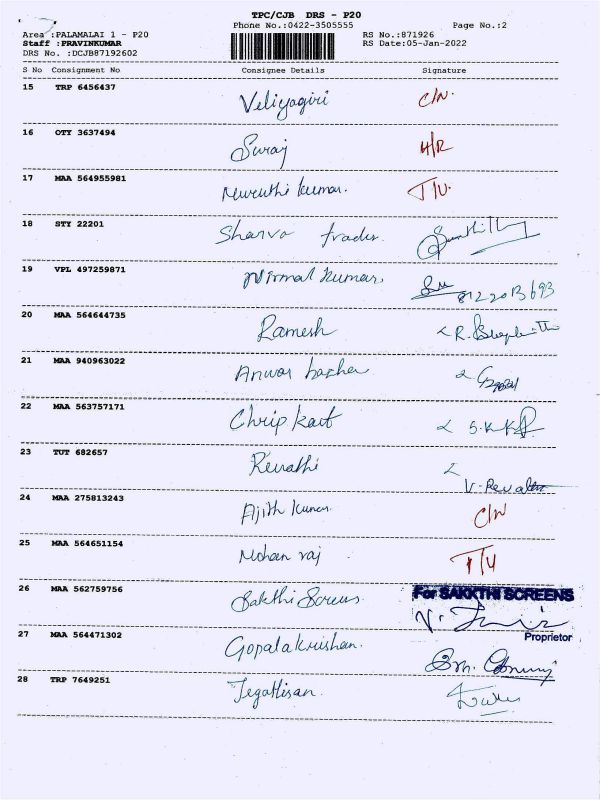 TPC/CJB DRS - P20
Phone No.:0422-3505555 Page No.:2
Area :PALAMALAI 1 - P20 RS No.:871926
Staff :PRAVINKUMAR RS Date:05-Jan-2022
DRS No. :DCJB87192602
S No Consignment No Consignee Details Signature
15 TRP 6456437 Veliyagiri C/N.
16 OTY 3637494 Suraj H/R
17 MAA 564955981 Muruthi kumar. T/U.
18 STY 22201 Sharvo trader.
19 VPL 497259871 Nirmal kumar, 8122013693
20 MAA 564644735 Ramesh R.
21 MAA 940963022 Anwar basha
22 MAA 563757171 Chripkart S.K
23 TUT 682657 Revathi
V. Revathi
24 MAA 275813243 Ajith kumar C/N
25 MAA 564651154 Mohan raj T/U
26 MAA 562759756 Sakthi Screens For SAKKTHI SCREENS
Proprietor
27 MAA 564471302 Gopalakrishan.
28 TRP 7649251 Jegattisan.